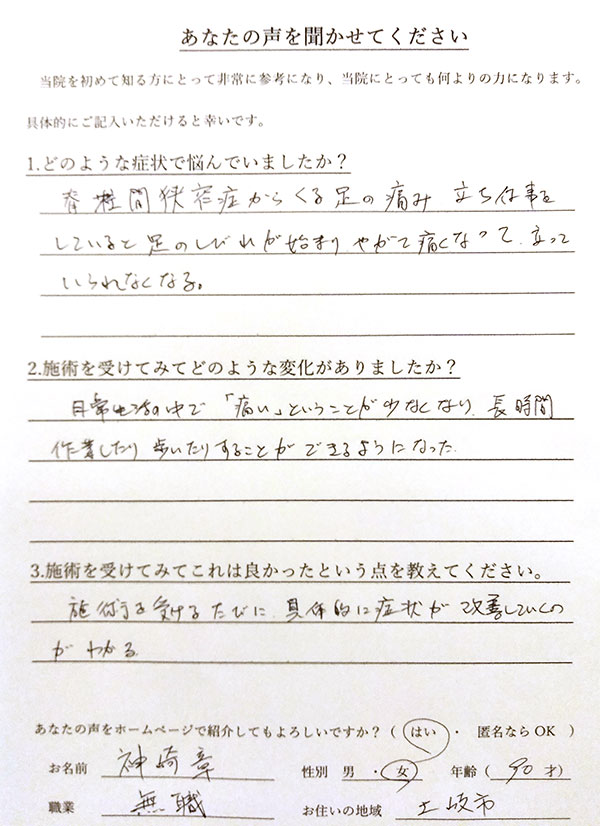 あなたの声を聞かせてください
当院を初めて知る方にとって非常に参考になり、当院にとっても何よりの力になります。
具体的にご記入いただけると幸いです。
1.どのような症状で悩んでいましたか？
脊柱間狭窄症からくる足の痛み 立ち仕事を
していると足のしびれが始まりやがて痛くなって、立って
いられなくなる。
2.施術を受けてみてどのような変化がありましたか？
日常生活の中で「痛い」ということが少なくなり、長時間
作業したり歩いたりすることができるようになった
3.施術を受けてみてこれは良かったという点を教えてください。
施術を受けるたびに、具体的に症状が改善していくの
がわかる
あなたの声をホームページで紹介してもよろしいですか？（ はい ・ 匿名ならOK ）
お名前 神崎章 性別 男 ・ 女 年齢（ 90 才）
職業 無職 お住いの地域 土岐市